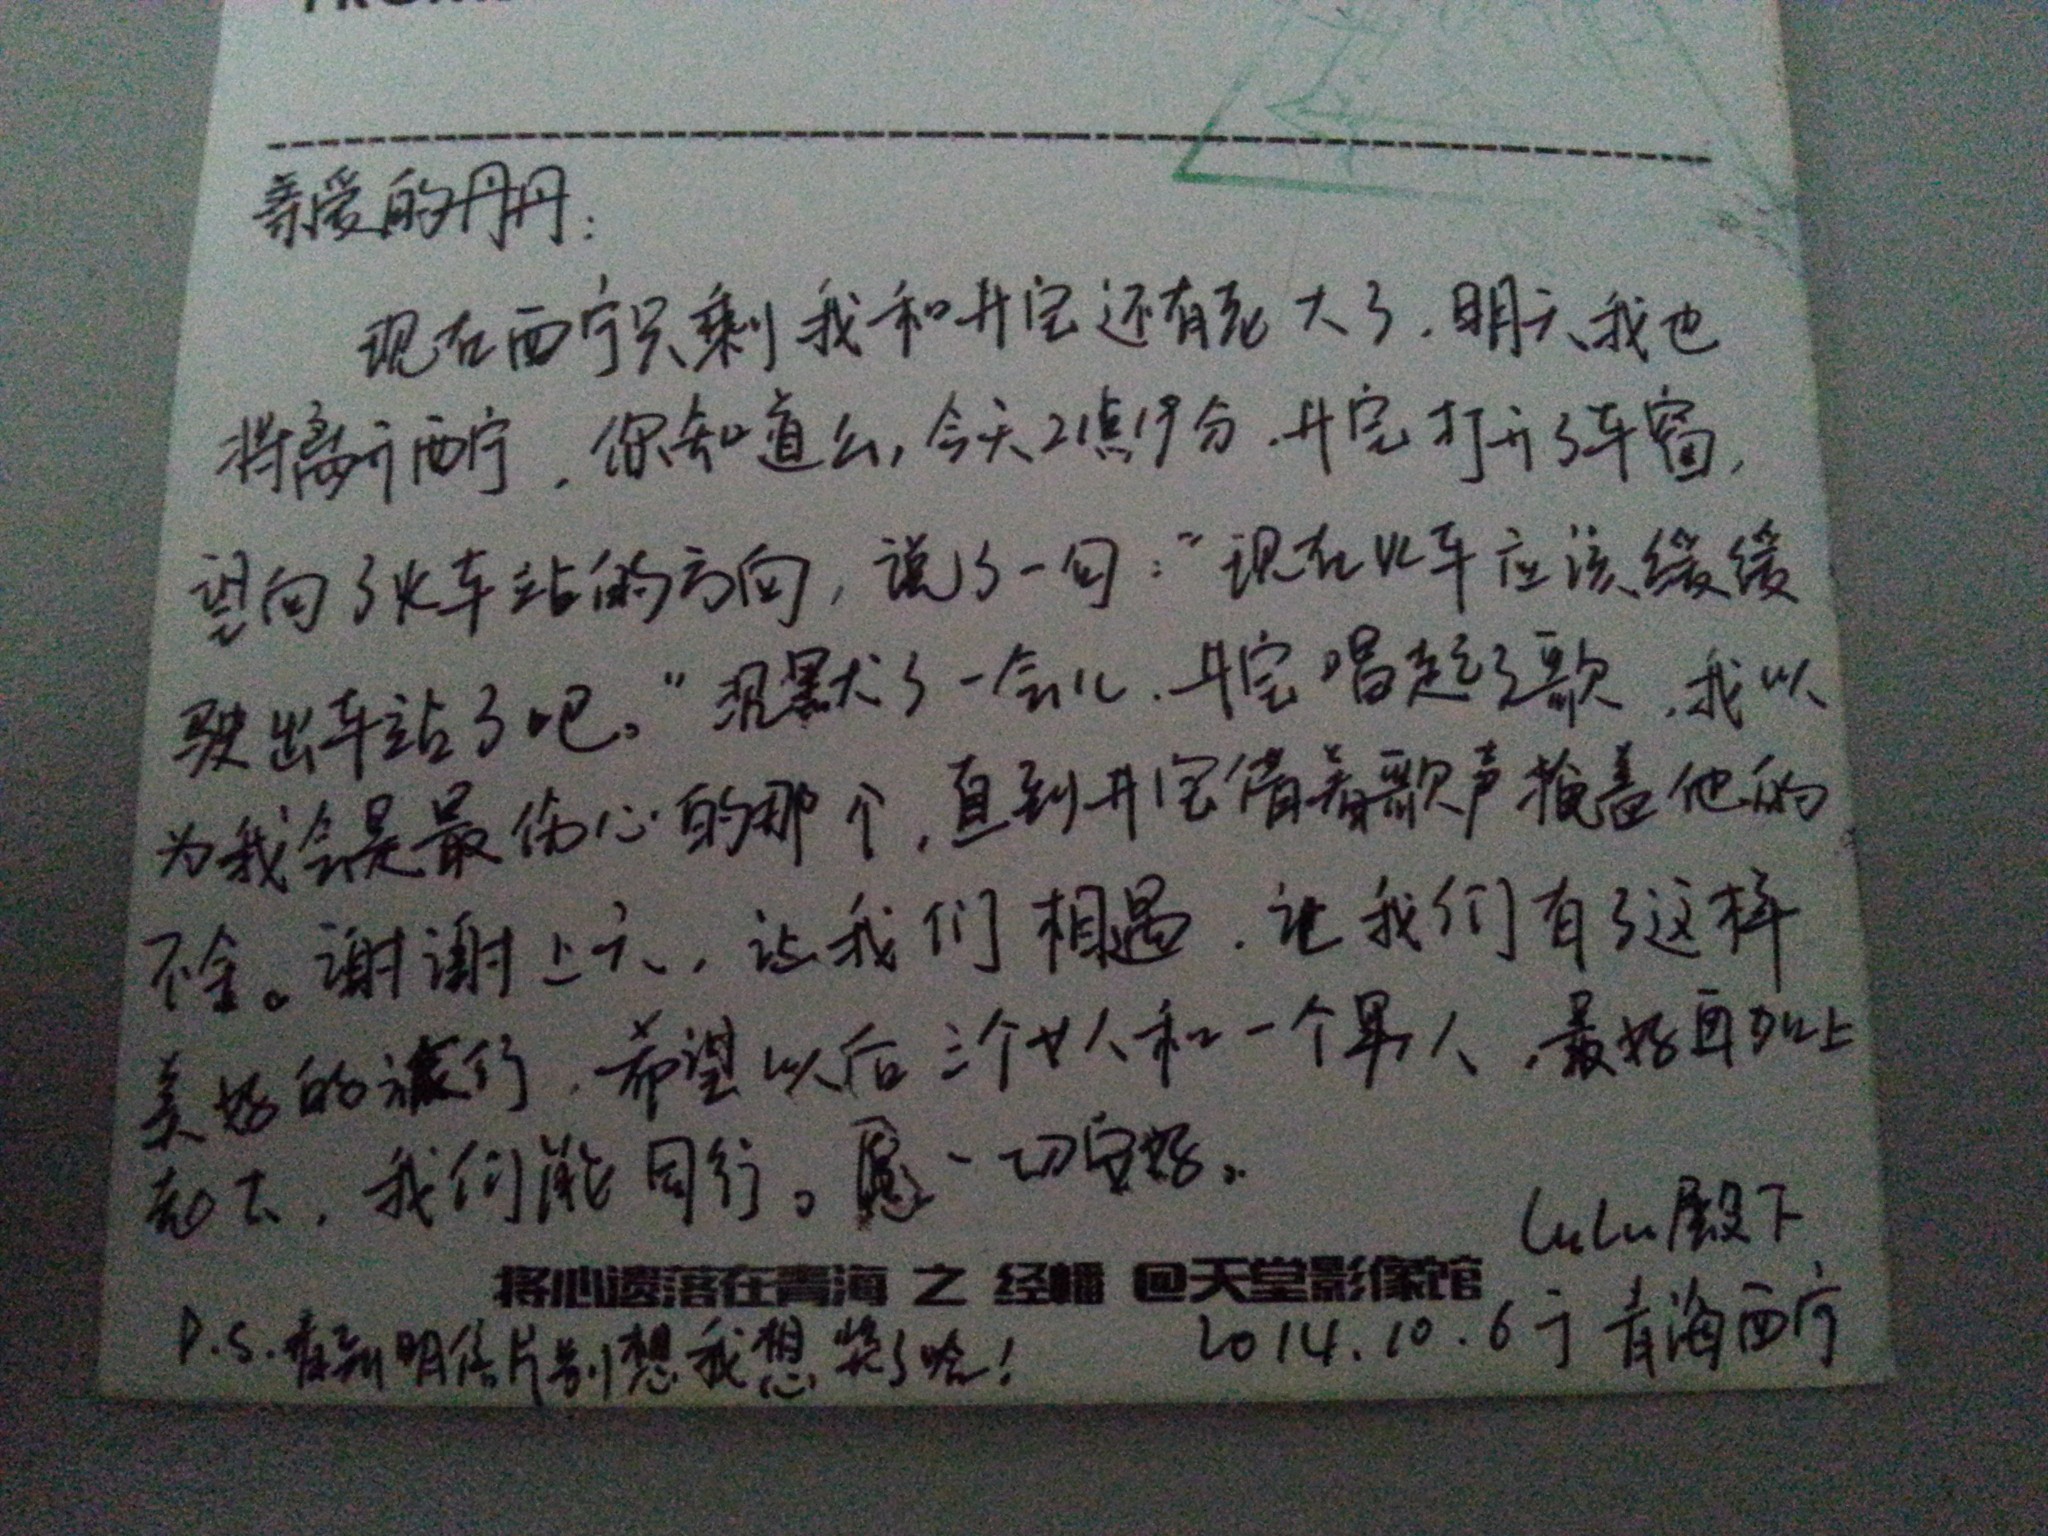 亲爱的丹丹：
现在西宁只剩我和井宝还有老大了，明天我也
将离开西宁，你知道么，今天2点19分，井宝打开了车窗，
望向了火车站的方向，说了一句：“现在火车应该缓缓
驶出车站了吧。”沉默了一会儿，井宝唱起了歌，我以
为我会是最伤心的那个，直到井宝借着歌声掩盖他的
不舍。谢谢上天，让我们相遇，让我们有了这样
美好的旅行，希望以后三个女人和一个男人，最好再加上
老大，我们能同行。愿一切安好。
LuLu殿下
将心遗落在青海 之 经幡 @天堂影像馆
2014.10.6于青海西宁
P.S.看到明信片别想我想哭了哈！